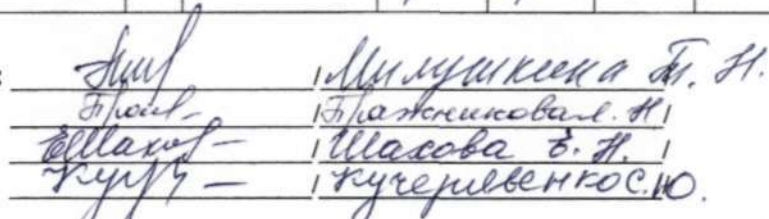 / Милушкина Т. Н.
/ Бражникова Л. Н /
ЕШахов / Шахова Е. Н. /
/ Кучерявенко С. Ю.